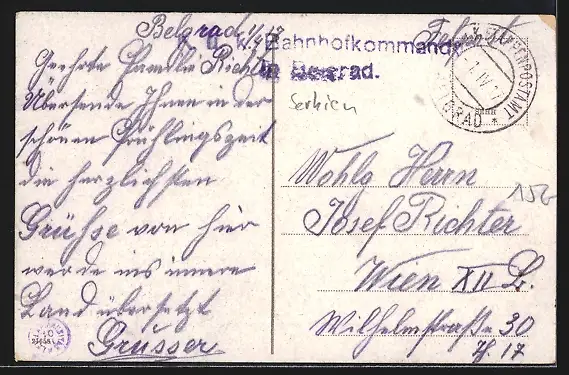 Belgrad, 1/4 17
Geehrte Familie Richter
Übersende Ihnen in der
schönen Frühlingszeit
die herzlichsten
Grüsse von hier
werde ins innere
Land übersetzt
Grusser
Feldpost
K. u. k. Bahnhofkommando
in Belgrad.
ETAPPENPOSTAMT
1. IV. 17
BELGRAD
Serbien
Wohlg Herrn
Josef Richter
Wien XII B.
Wilhelmstraße 30
T. 17
15G